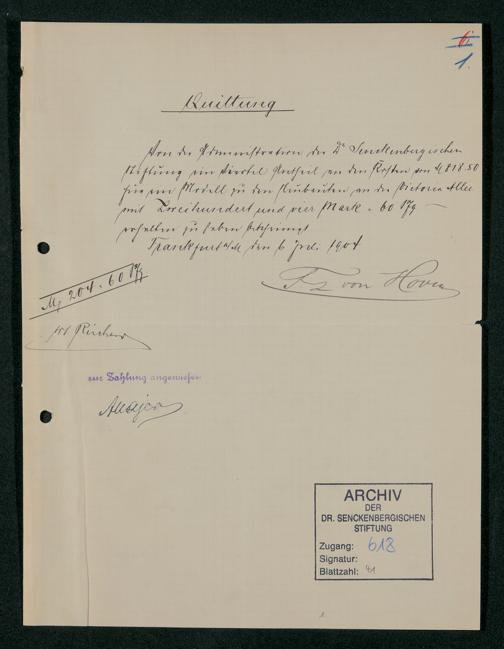 6.
1.
Quittung
Von der Administration der Dr Senckenbergischen
Stiftung ein viertel Antheil an den Kosten von M 818.50
für ein Modell zu den Neubauten an der Victoria Allee
mit Zweihundert und vier Mark - 60 Pfg
erhalten zu haben bescheinigt
Franckfurt a/M. den 6 1904
Fz von Hoven
M 204.60 Pfg
zur Zahlung angewiesen
ARCHIV
DER
DR. SENCKENBERGISCHEN
STIFTUNG
Zugang: 618
Signatur:
Blattzahl: